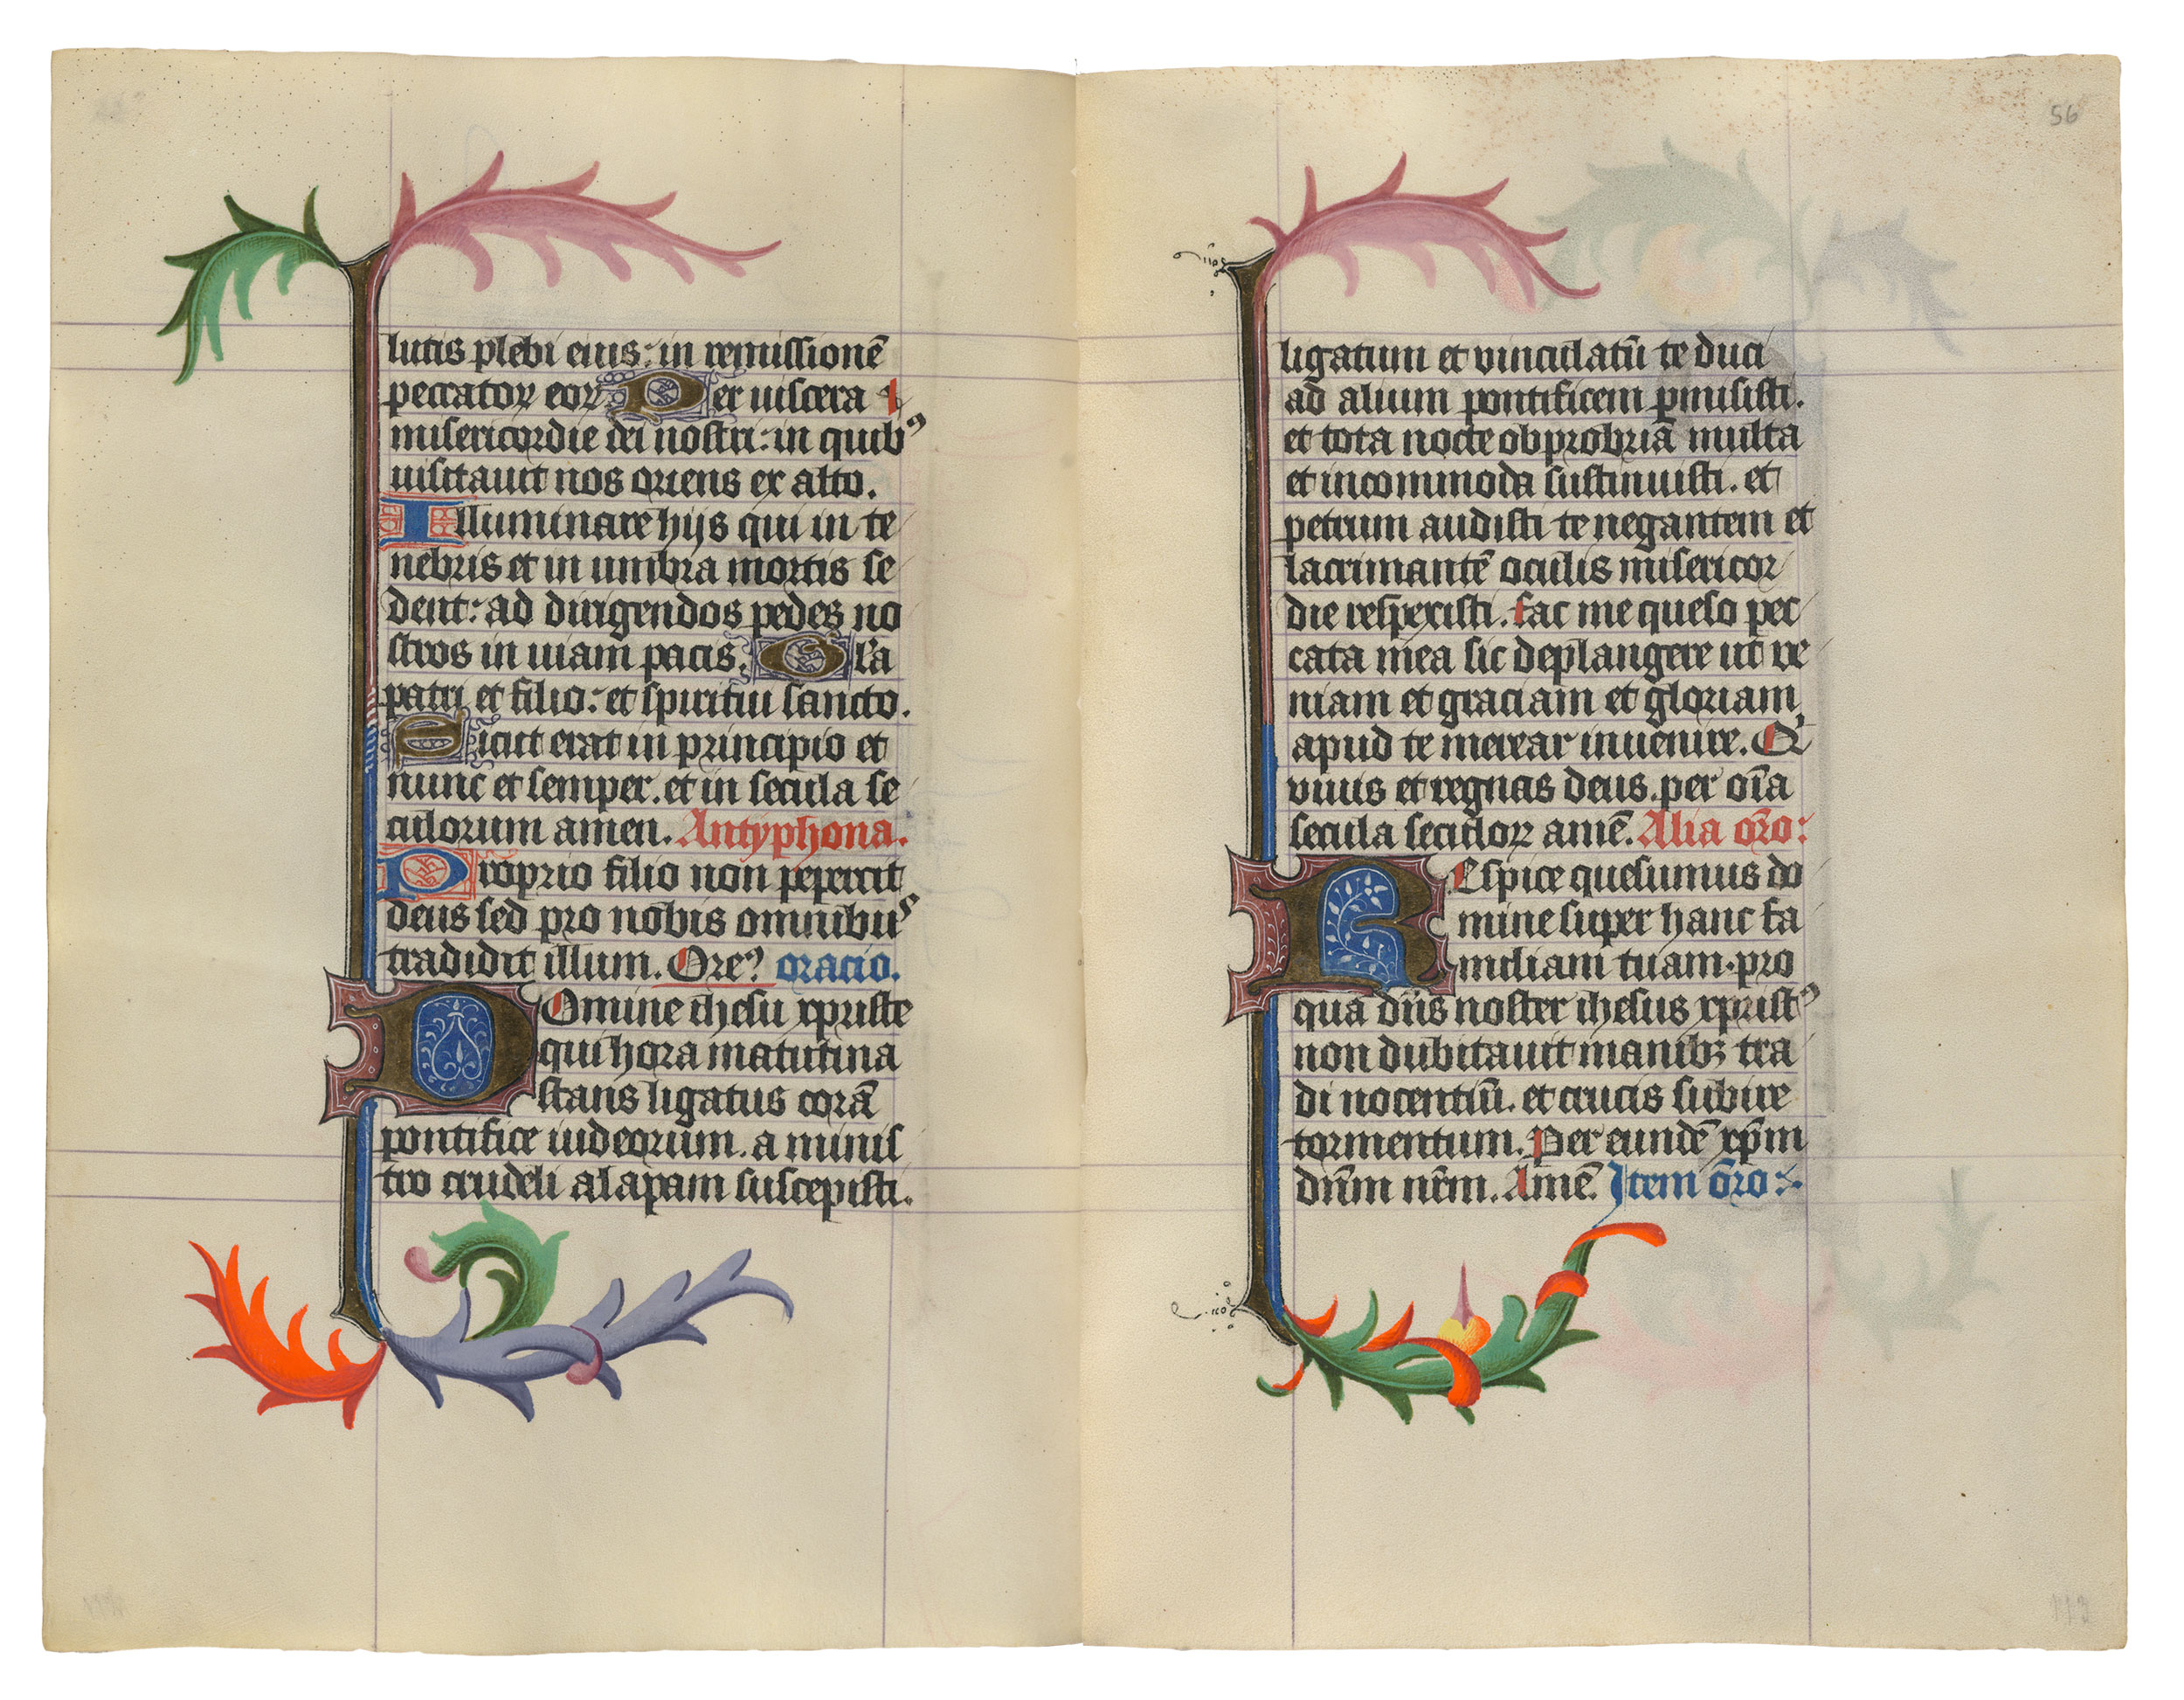 lutis plebi eius: in remissionē
peccatoꝝ eoꝝ. Per uiscera
misericordie dei nostri: in quibꝰ
uisitauit nos oriens ex alto.
Illuminare hijs qui in te
nebris et in umbra mortis se
dent: ad dirigendos pedes no
stros in uiam pacis. Gl'a
patri et filio: et spiritui sancto.
Sicut erat in principio et
nunc et semper. et in secula se
culorum amen. Antyphona.
Proprio filio non pepercit
deus sed pro nobis omnibus
tradidit illum. Oreꝰ oracio.
Domine ihesu xpriste
qui hora matutina
stans ligatus corā
pontifice iudeorum. a minis
tro crudeli alapam suscepisti.
56
ligatum et vinculatū te duci
ad alium pontificem ꝑmisisti.
et tota nocte obprobriā multa
et incommoda sustinuisti. et
petrum audisti te negantem et
lacrimantē oculis misericor
die respexisti. fac me queso pec
cata mea sic deplangere ut ve
niam et graciam et gloriam
apud te merear inuenire. Q'
viuis et regnas deus. per oīa
secula seculoꝝ amē. Alia or̄o:
REspice quesumus do
mine super hanc fa
miliam tuam. pro
qua dn̄s noster ihesus xpristꝰ
non dubitauit manibꝫ tra
di nocentiū. et crucis subire
tormentum. Per eundē xp̄m
dn̄m nr̄m. Amē. Item or̄o:
113